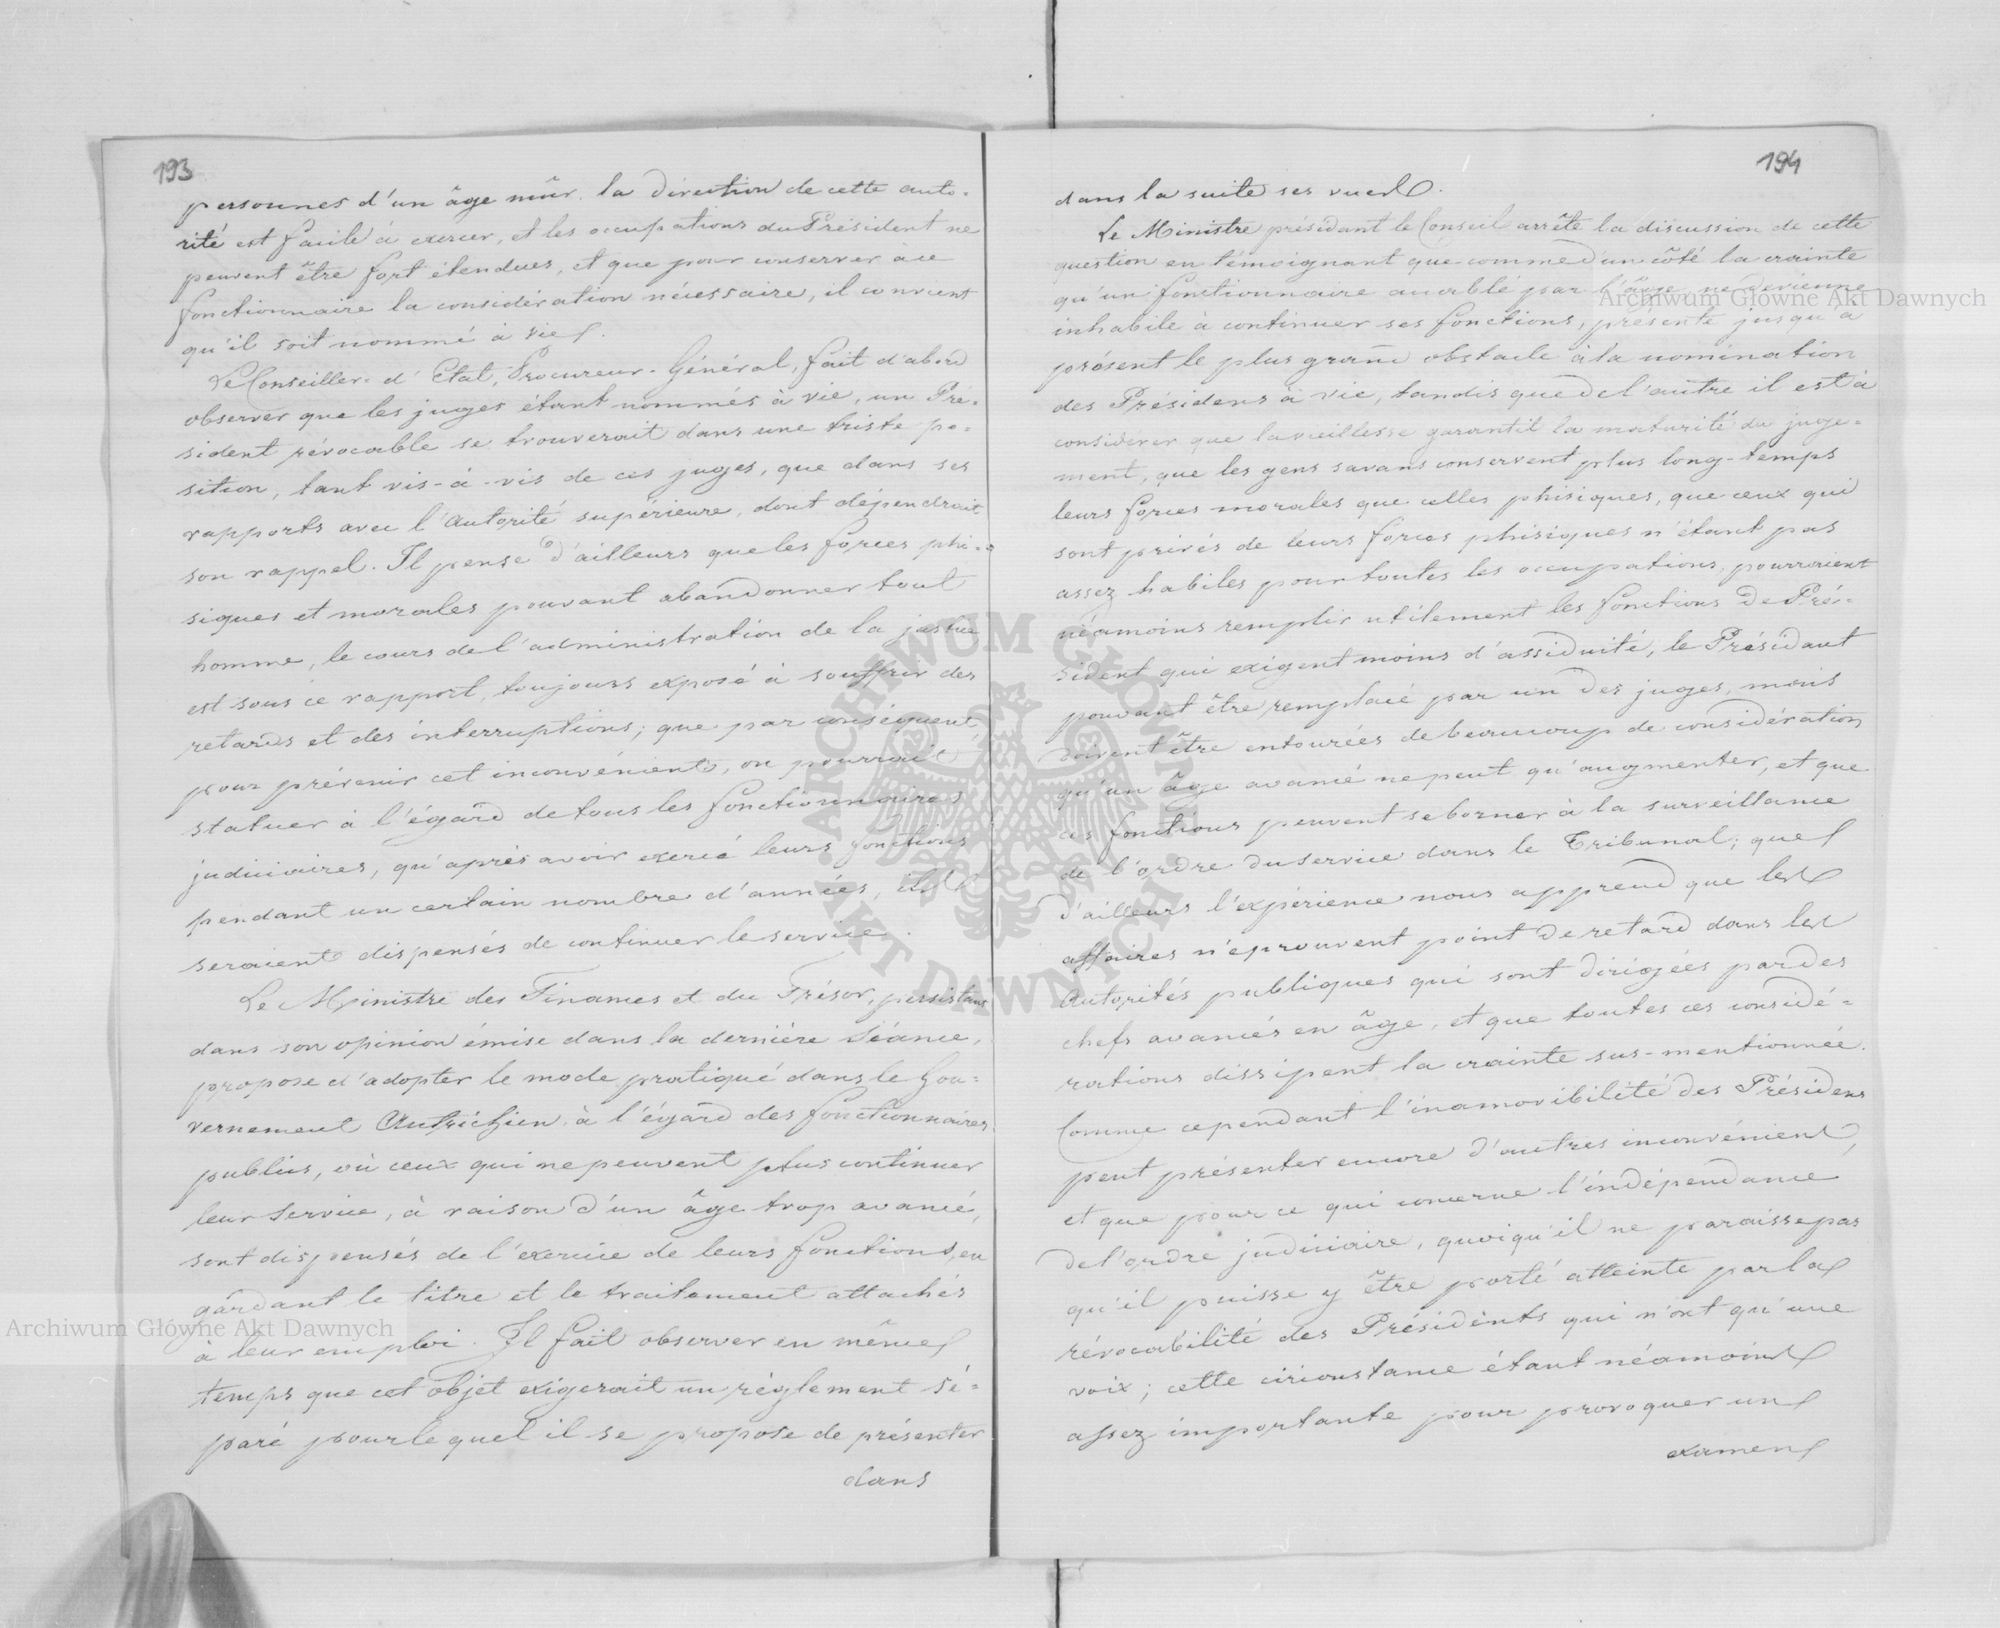 193
personnes d'un âge mûr. la direction de cette auto-
rité est facile à exercer, et les occupations du Président ne
peuvent être fort étendues, et que pour conserver au
fonctionnaire la considération nécessaire, il convient
qu'il soit nommé à vie.
Le Conseiller d'Etat, Procureur-Général, fait d'abord
observer que les juges étant nommés à vie, un Pré-
sident révocable se trouverait dans une triste po-
sition, tant vis-à-vis de ces juges, que dans ses
rapports avec l'Autorité supérieure, dont dépendrait
son rappel. Il pense d'ailleurs que les forces phi-
siques et morales pouvant abandonner tout
homme, le cours de l'administration de la justice
est sous ce rapport, toujours exposé à souffrir des
retards et des interruptions; que par conséquent,
pour prévenir cet inconvénient, on pourrait
statuer à l'égard de tous les fonctionnaires
judiciaires, qu'après avoir exercé leurs fonctions
pendant un certain nombre d'années, ils
seraient dispensés de continuer le service.
Le Ministre des Finances et du Trésor, persistant
dans son opinion émise dans la dernière Séance,
propose d'adopter le mode pratiqué dans le Gou-
vernement Autrichien, à l'égard des fonctionnaires
publics, où ceux qui ne peuvent plus continuer
leur service, à raison d'un âge trop avancé,
sont dispensés de l'exercice de leurs fonctions, en
gardant le titre et le traitement attachés
à leur emploi. Il fait observer en même
temps que cet objet exigerait un règlement sé-
paré pour le quel il se propose de présenter
dans
194
dans la suite ses vues.
Le Ministre présidant le Conseil arrête la discussion de cette
question en témoignant que comme d'un côté la crainte
qu'un fonctionnaire accablé par l'âge ne devienne
inhabile à continuer ses fonctions, présente jusqu'à
présent le plus grand obstacle à la nomination
des Présidens à vie, tandis que de l'autre il est à
considérer que la vieillesse garantit la maturité du juge-
ment, que les gens savans conservent plus long-temps
leurs forces morales que celles phisiques, que ceux qui
sont privés de leurs forces phisiques n'étant pas
assez habiles pour toutes les occupations, pourraient
néamoins remplir utilement les fonctions de Pré-
sident qui exigent moins d'assiduité, le Président
pouvant être remplacé par un des juges, mais
doivent être entourées de beaucoup de considération
qu'un âge avancé ne peut qu'augmenter, et que
ces fonctions peuvent se borner à la surveillance
de l'ordre du service dans le Tribunal; que
d'ailleurs l'expérience nous apprend que les
affaires n'éprouvent point de retard dans les
Autorités publiques qui sont dirigées par des
chefs avancés en âge, et que toutes ces considé-
rations dissipent la crainte sus-mentionnée.
Comme cependant l'inamovibilité des Présidens
peut présenter encore d'autres inconvéniens,
et que pour ce qui concerne l'indépendance
de l'ordre judiciaire, quoiqu'il ne paraisse pas
qu'il puisse y être porté atteinte par la
révocabilité des Présidents qui n'ont qu'une
voix; cette circonstance étant néamoins
assez importante pour provoquer un
examen
Archiwum Główne Akt Dawnych
Archiwum Główne Akt Dawnych
ARCHIWUM GŁÓWNE AKT DAWNYCH